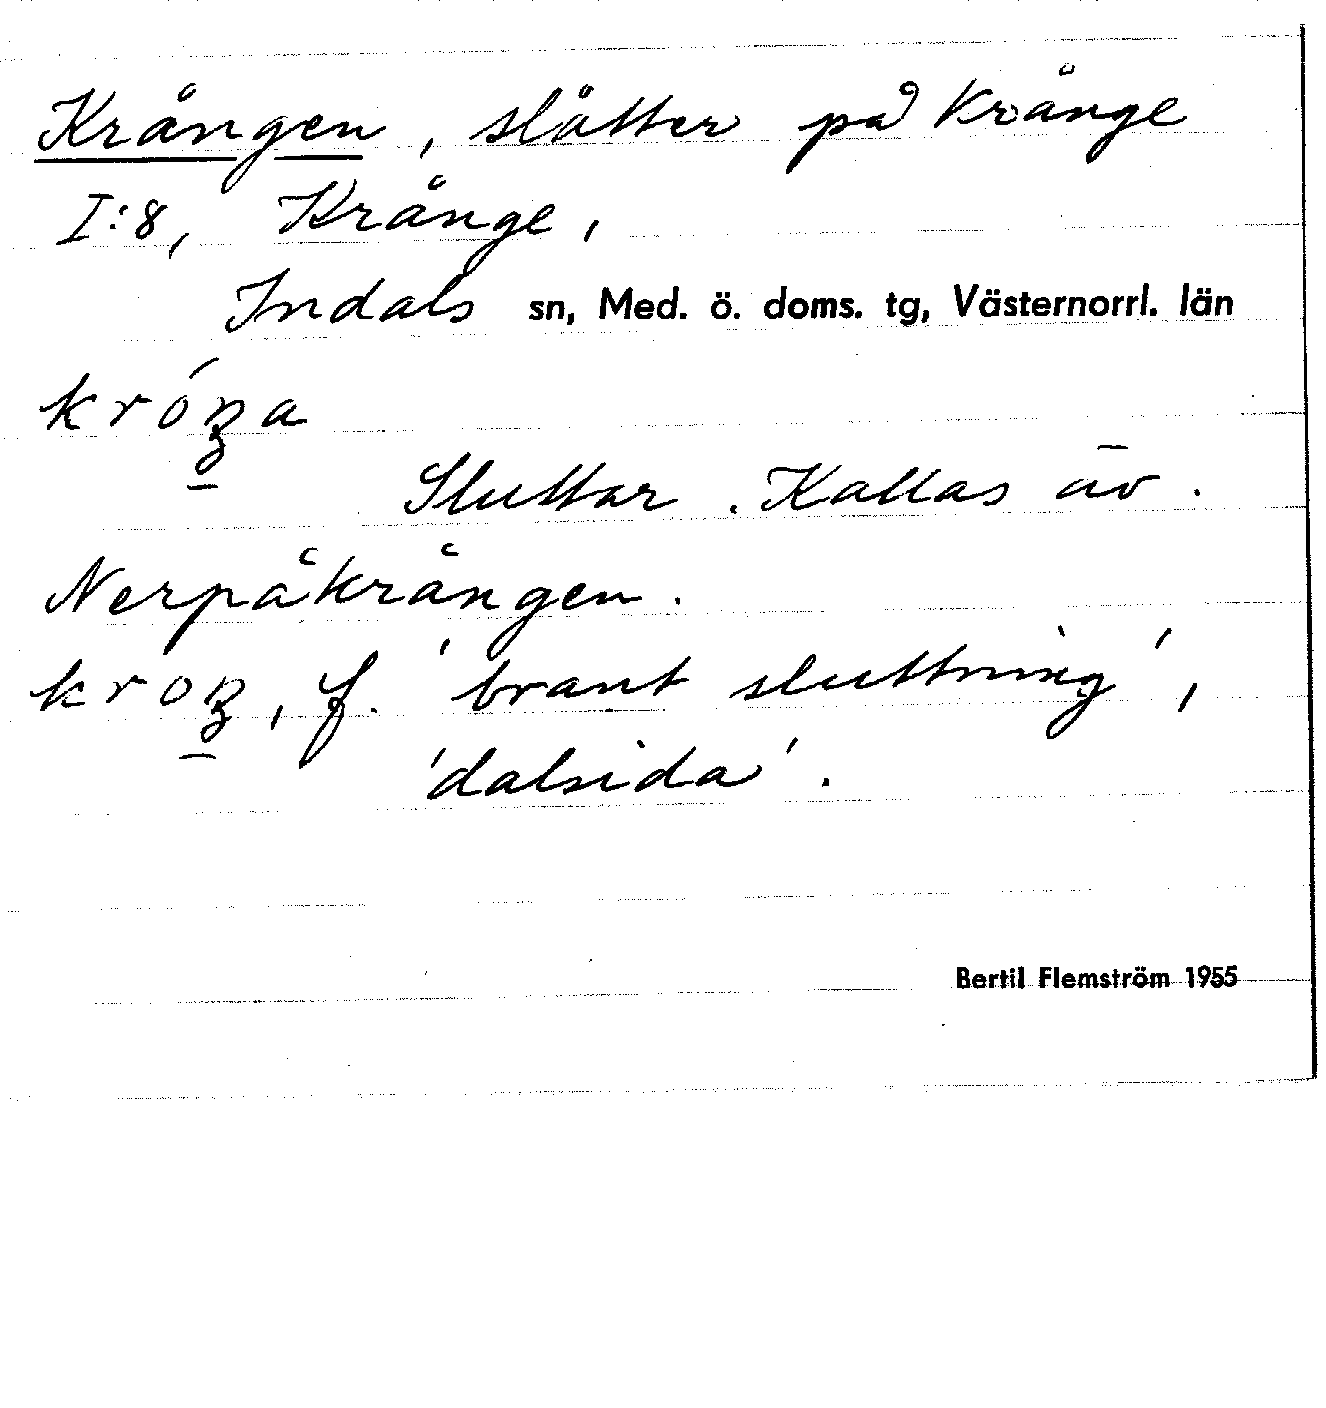 Krången, slåtter på Krånge
I:8, Krånge,
Indals sn, Med. ö. doms. tg, Västernorrl. län
króŋa
Sluttar. Kallas äv.
Nerpåkrången.
kroŋ, f. 'brant sluttning',
'dalsida'.
Bertil Flemström 1955